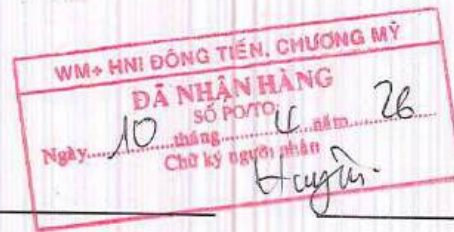 WM+ HNI ĐÔNG TIẾN, CHƯƠNG MỸ
ĐÃ NHẬN HÀNG
SỐ PO/TO:
Ngày 10 tháng 4 năm 26
Chữ ký người nhận
Huyền